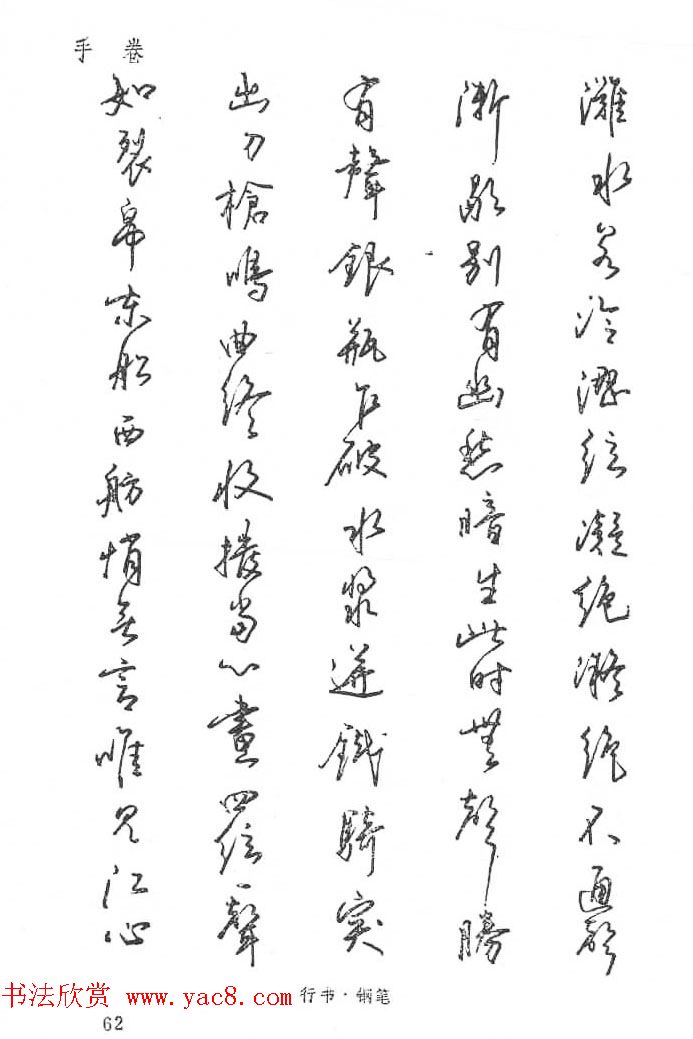 手卷
灘水泉冷澀絃凝絕凝絕不通聲
漸歇別有幽愁暗生此時無聲勝
有聲銀瓶乍破水漿迸鐵騎突
出刀槍鳴曲終收撥當心畫四絃一聲
如裂帛東船西舫悄無言唯見江心
行书·钢笔
书法欣赏 www.yac8.com
62